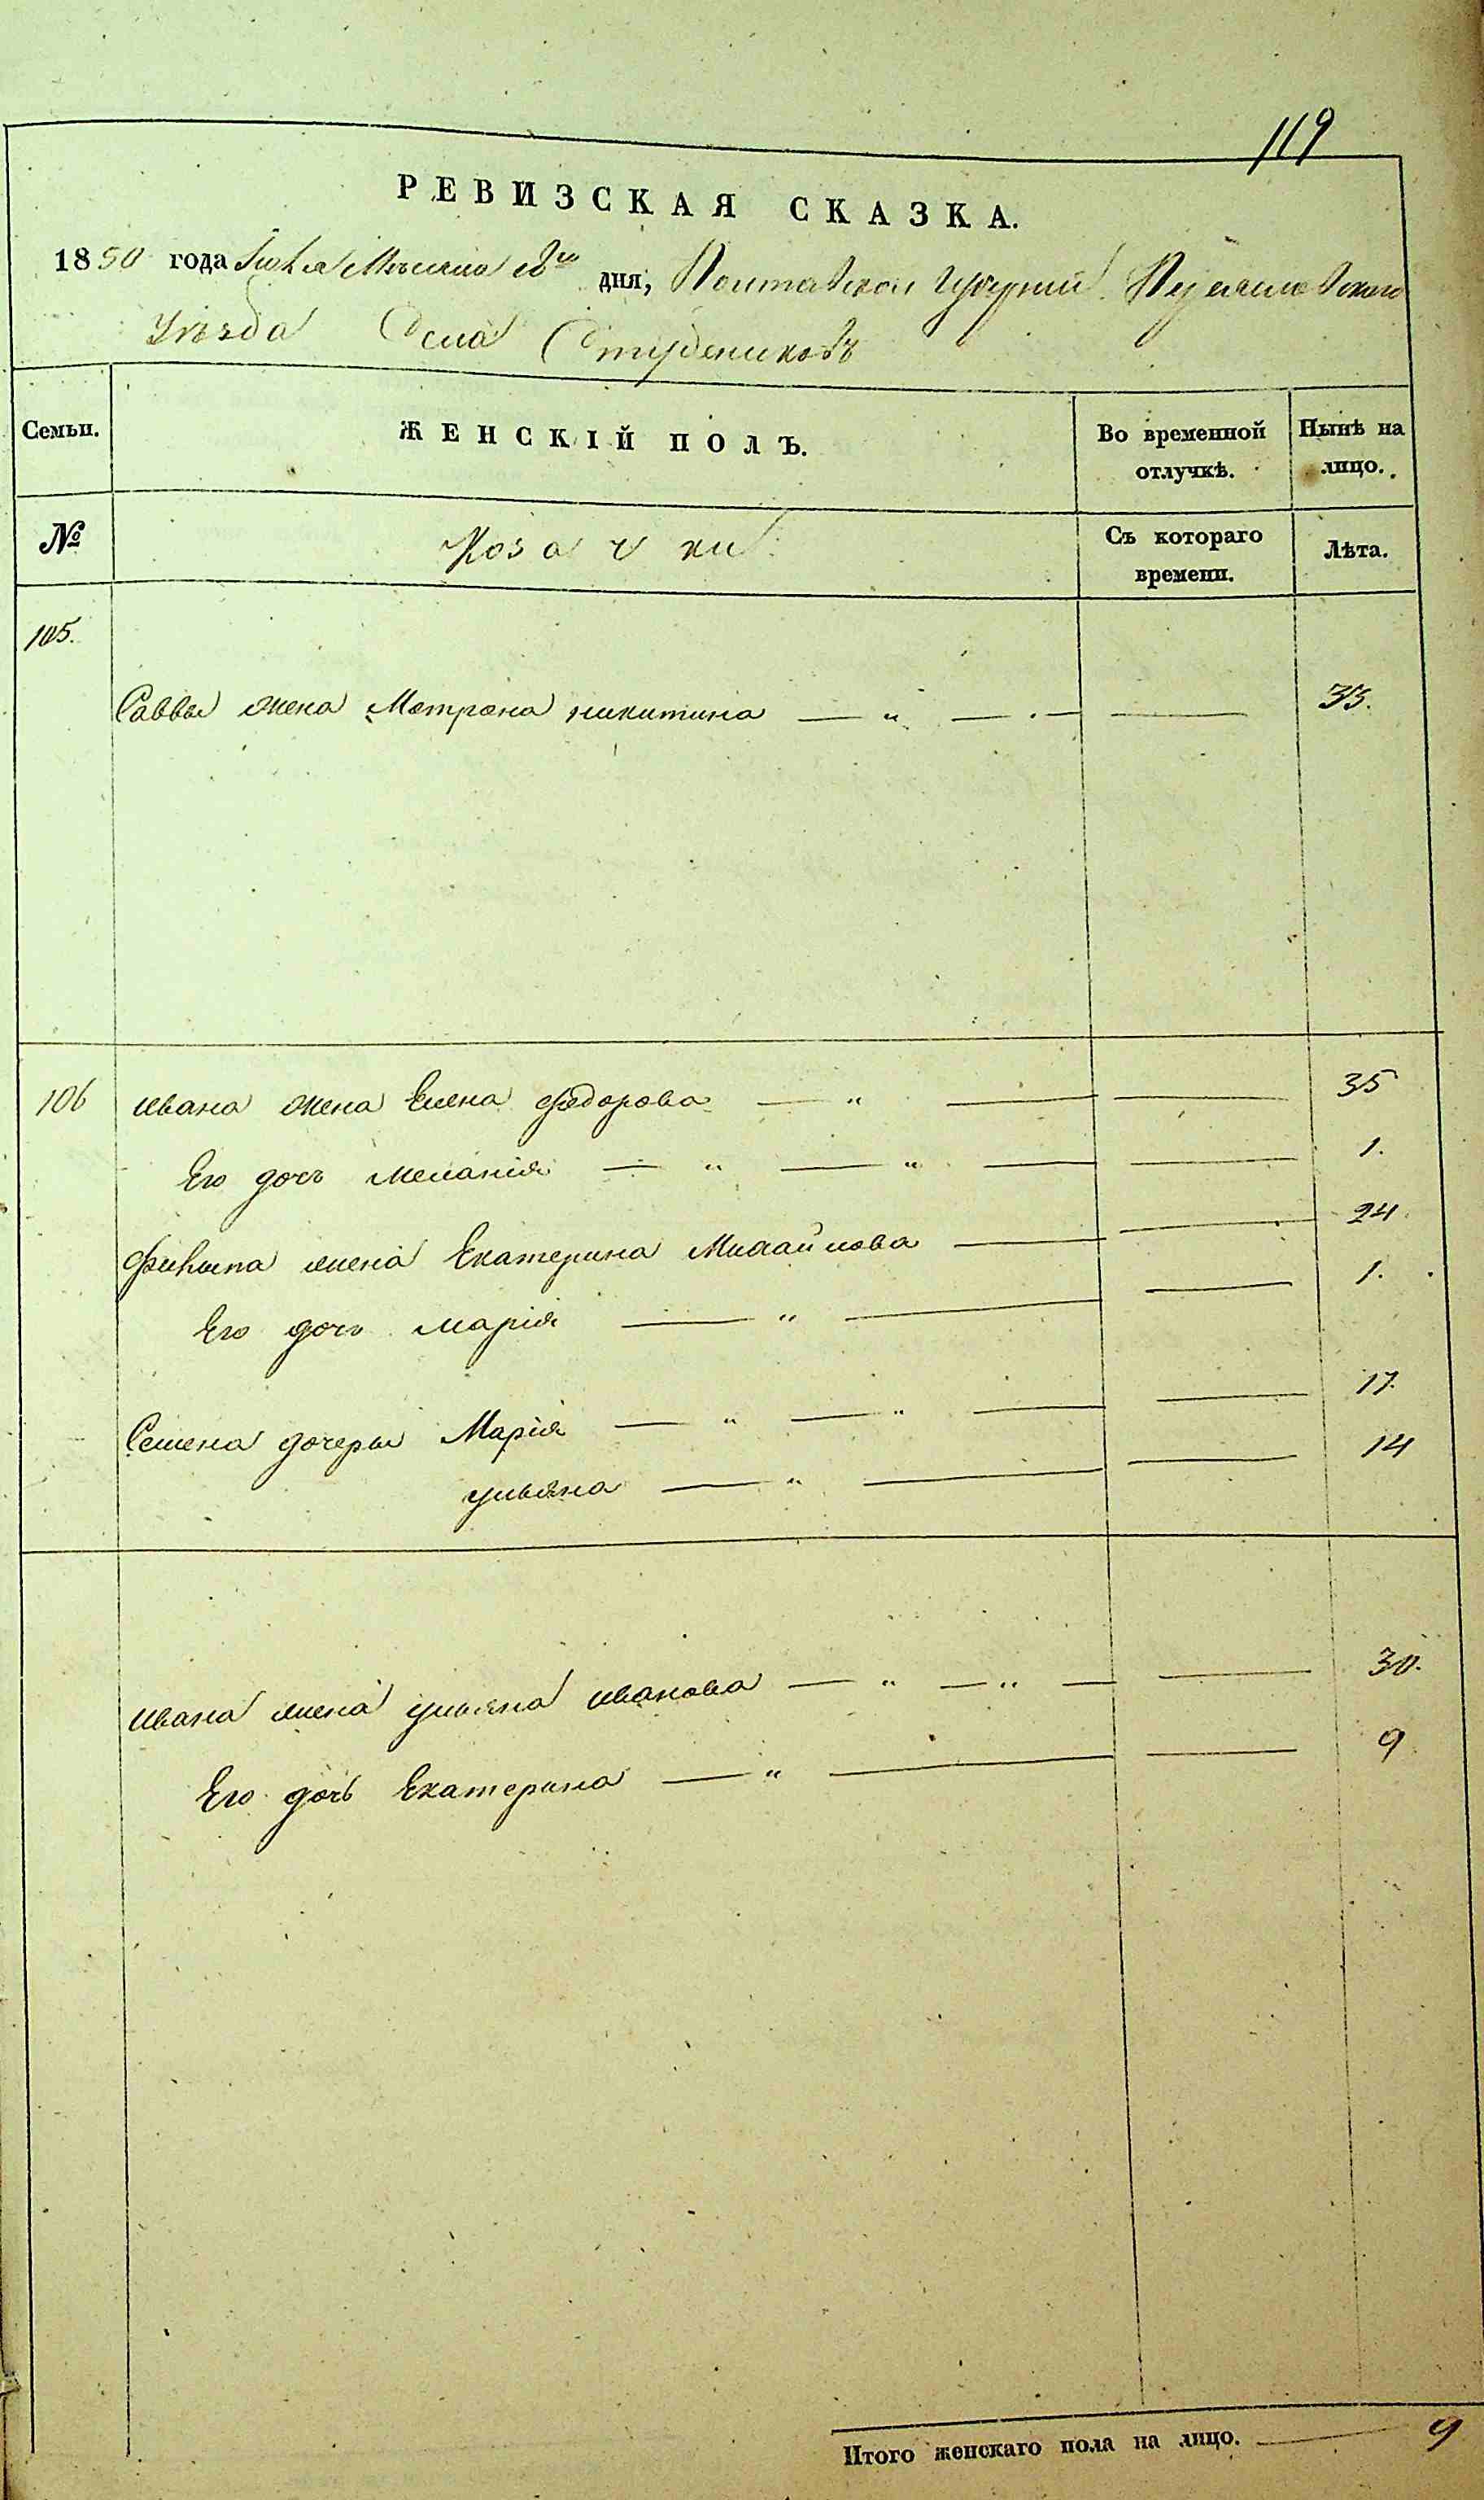 119
РЕВИЗСКАЯ СКАЗКА.
1850 года Июля Мѣсяца дня, Полтавской губерніи Переяславского
Уѣзда Села Студениковъ
Семьи. ЖЕНСКІЙ ПОЛЪ. Во временной отлучкѣ. Нынѣ на лицо.
№ Козачки Съ котораго времени. Лѣта.
105.
Саввы жена Матрона никитина — „ — — — 33.
106 ивана жена Елена федорова — „ — — 35
Его дочь меланія — „ — „ — — 1.
филипа жена Екатерина Михайлова — — 24.
Его дочь марія — „ — — 1.
Семена дочеры Марія — „ — „ — — 17.
ульяна — „ — — 14
ивана жена ульяна иванова — „ — „ — — 30.
Его дочь Екатерина — „ — — 9
Итого женскаго пола на лицо. — 9